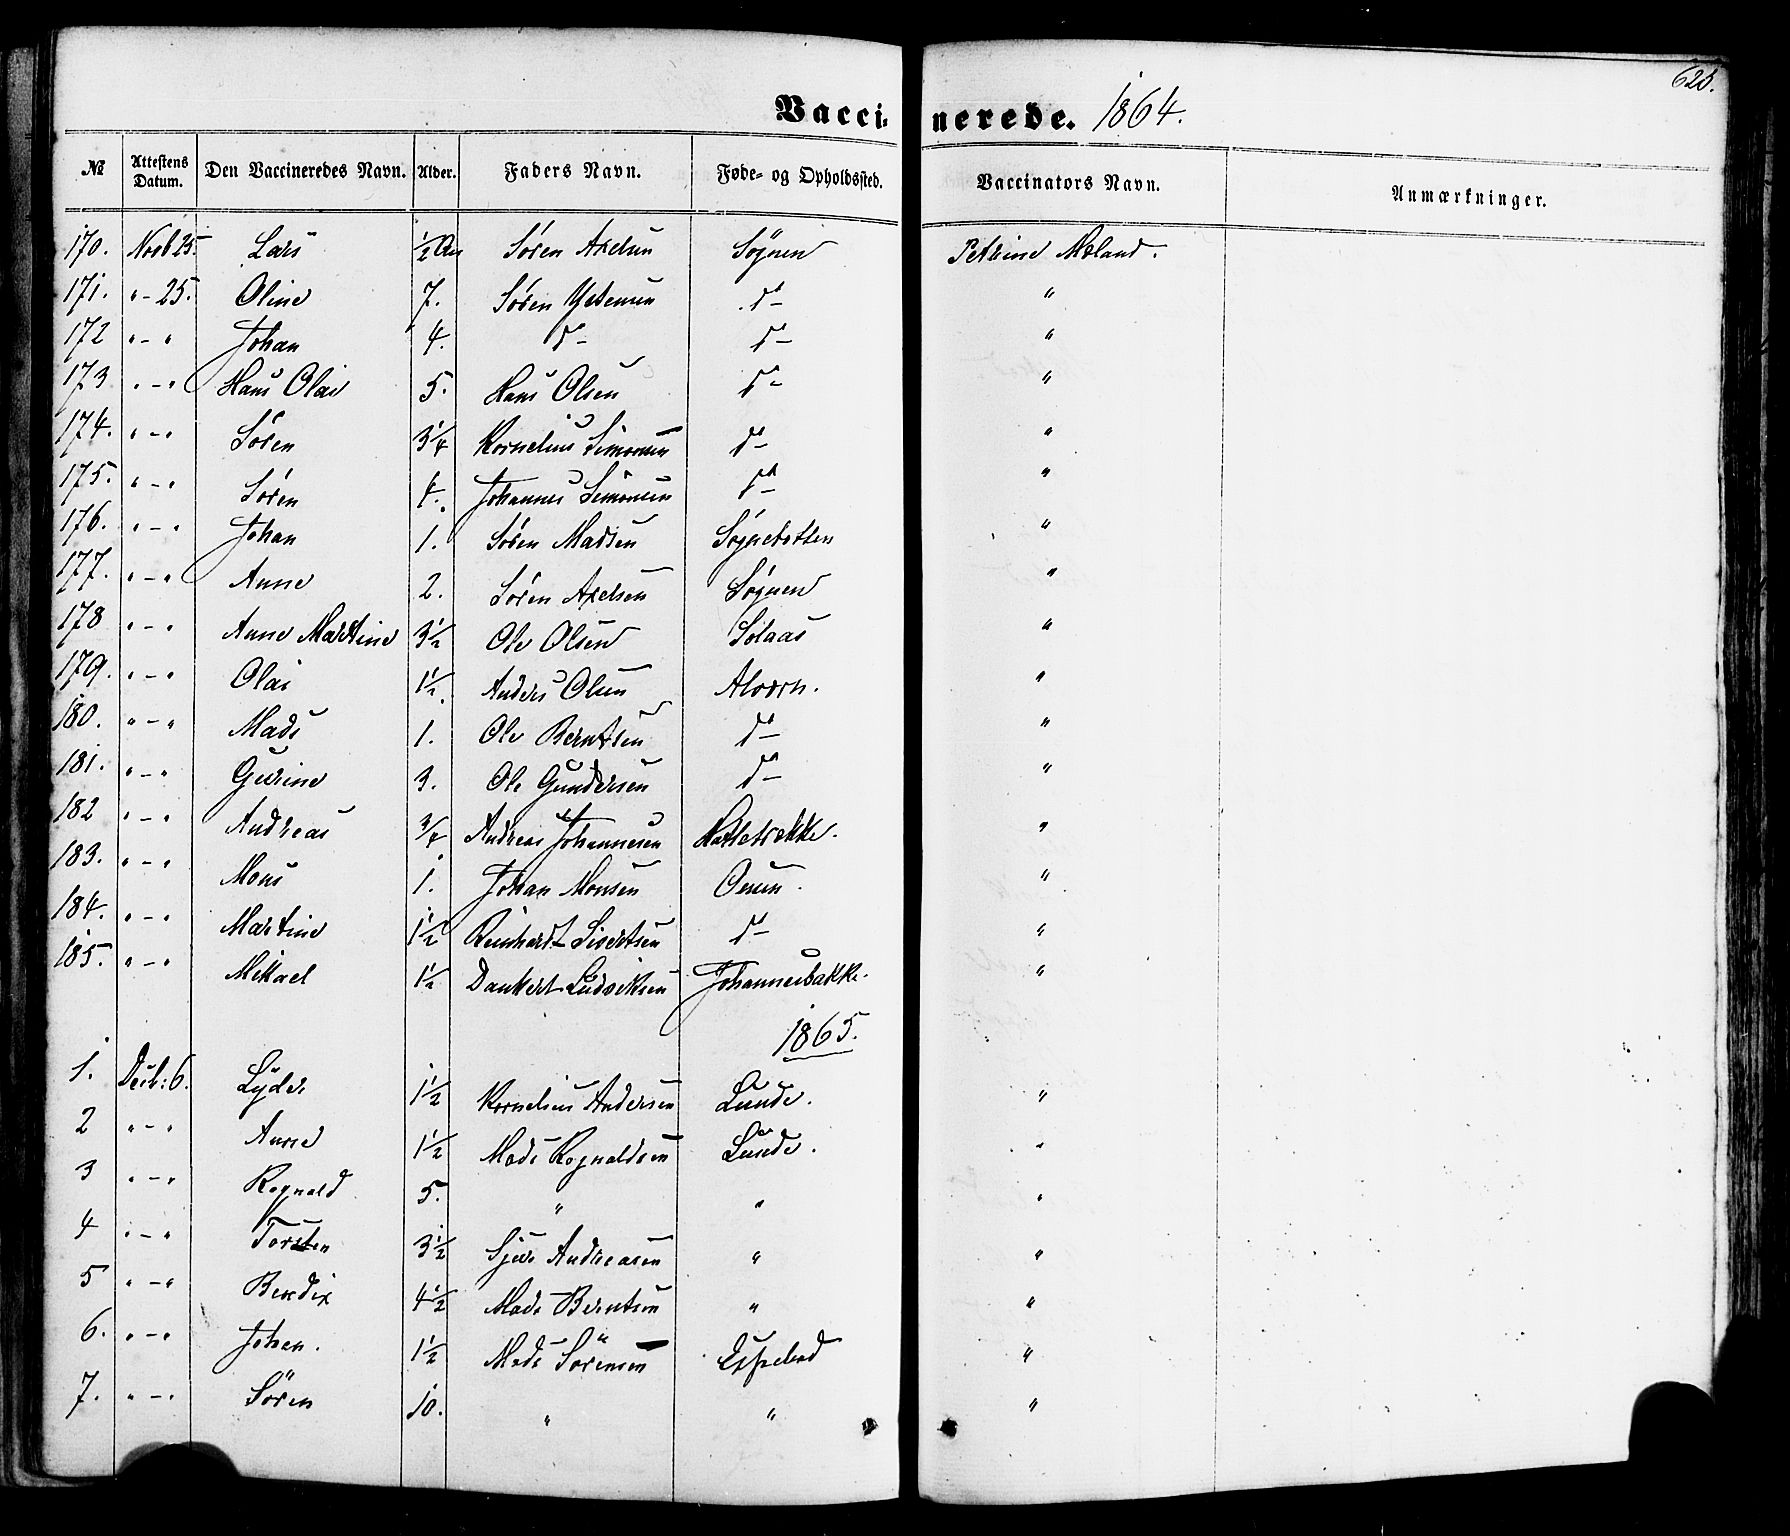 625.
Vaccinerede. 1864.
№ Attestens Datum. Den Vaccineredes Navn. Alder. Faders Navn. Føde- og Opholdssted. Vaccinators Navn. Anmærkninger.
170. Novb 25. Lars ½ Søren Axelsen Søgnen Petrine Mæland.
171. " - 25. Oline 7. Søren d- "
172 " - " Johan 4. d- d- "
173 " - " Hans Olai 5. Hans Olsen d- "
174. " - " Søren 3¼ Kornelius Simonsen d- "
175. " - " Søren Johannes Simonsen d- "
176. " - " Johan 1. Søren Madsen "
177. " - " Anne 2. Søren Axelsen Søgnen "
178 " - " Anne Martine 3½ Ole Olsen Solaas "
179. " - " Olai 1½. Anders Olsen "
180. " - " Mads 1. Ole Berntsen d- "
181. " - " Gurine 3. Ole Gundersen d- "
182 " - " Andreas ¾ Andreas Johannesen "
183. " - " Mons 1. Johan Monsen "
184. " - " Martine 1½ Reinhardt Sivertsen d- "
185. " - " Mikael 1½ Dankert Ludviksen Johannesbakke. "
1865.
1. Decb: 6. Lyder 1½ Kornelius Andersen Lunde. "
2 " - " Anne 1½ Mads Rognaldsen Lunde. "
3 " - " Rognald 5. " " "
4 " - " Torsten 3½ Sjur Andreasen " "
5 " - " Bendix 4½ Mads Berntsen " "
6. " - " Johan. 1½ Mads Sörensen Espeland "
7. " - " Sören 10. " " "